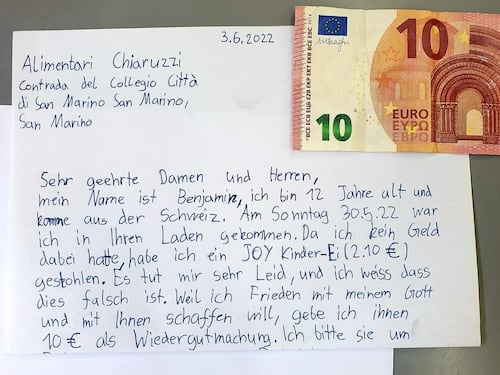 3.6.2022
Alimentari Chiaruzzi
Contrada del Collegio Città
di San Marino San Marino,
San Marino
Sehr geehrte Damen und Herren,
mein Name ist Benjamin, ich bin 12 Jahre alt und
komme aus der Schweiz. Am Sonntag 30.5.22 war
ich in Ihren Laden gekommen. Da ich kein Geld
dabei hatte, habe ich ein JOY Kinder-Ei (2.10 €)
gestohlen. Es tut mir sehr Leid, und ich weiss dass
dies falsch ist. Weil ich Frieden mit meinem Gott
und mit Ihnen schaffen will, gebe ich ihnen
10 € als Wiedergutmachung. Ich bitte sie um
10
10
EURO
ΕΥΡΩ
ЕВРО